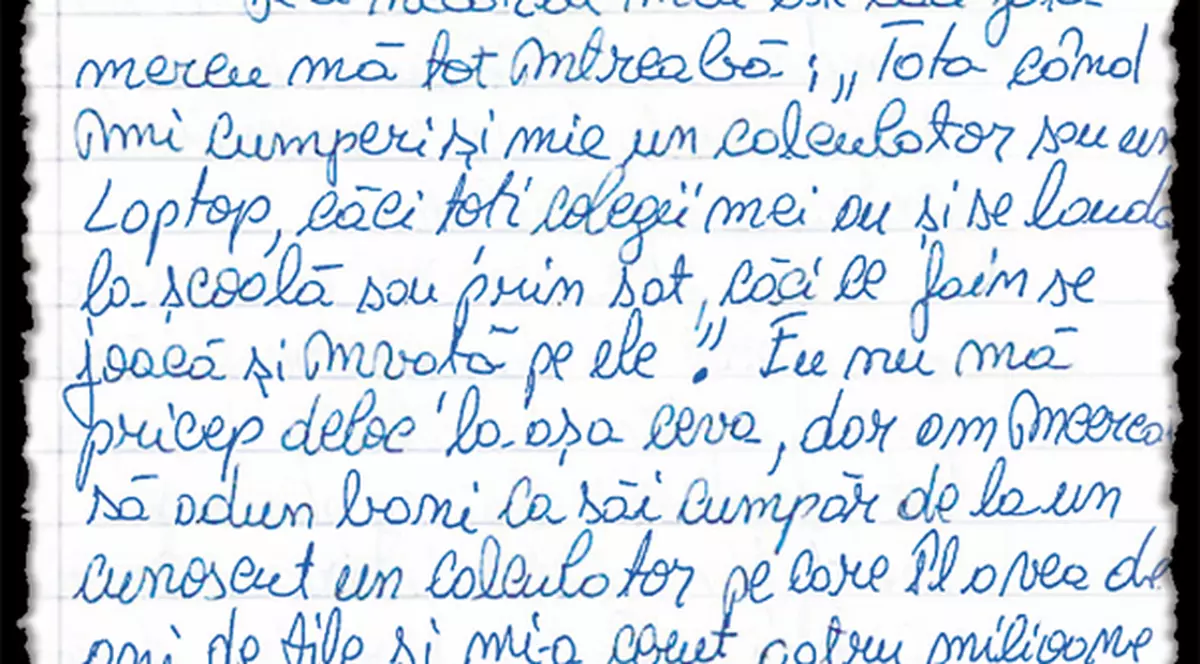 mereu mă tot întreabă: „Tata când
îmi cumperi și mie un calculator sau un
Laptop, căci toți colegii mei au și se laudă
la școală sau prin sat, căci ce fain se
joacă și învață pe ele”. Eu nu mă
pricep deloc la așa ceva, dar am încerca
să adun bani ca săi cumpăr de la un
cunoscut un calculator pe care îl avea de
ani de zile și mi-a cerut patru milioane